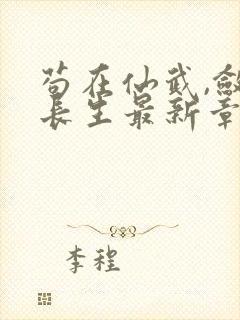 苟在仙武,敛
长生最新章
李程